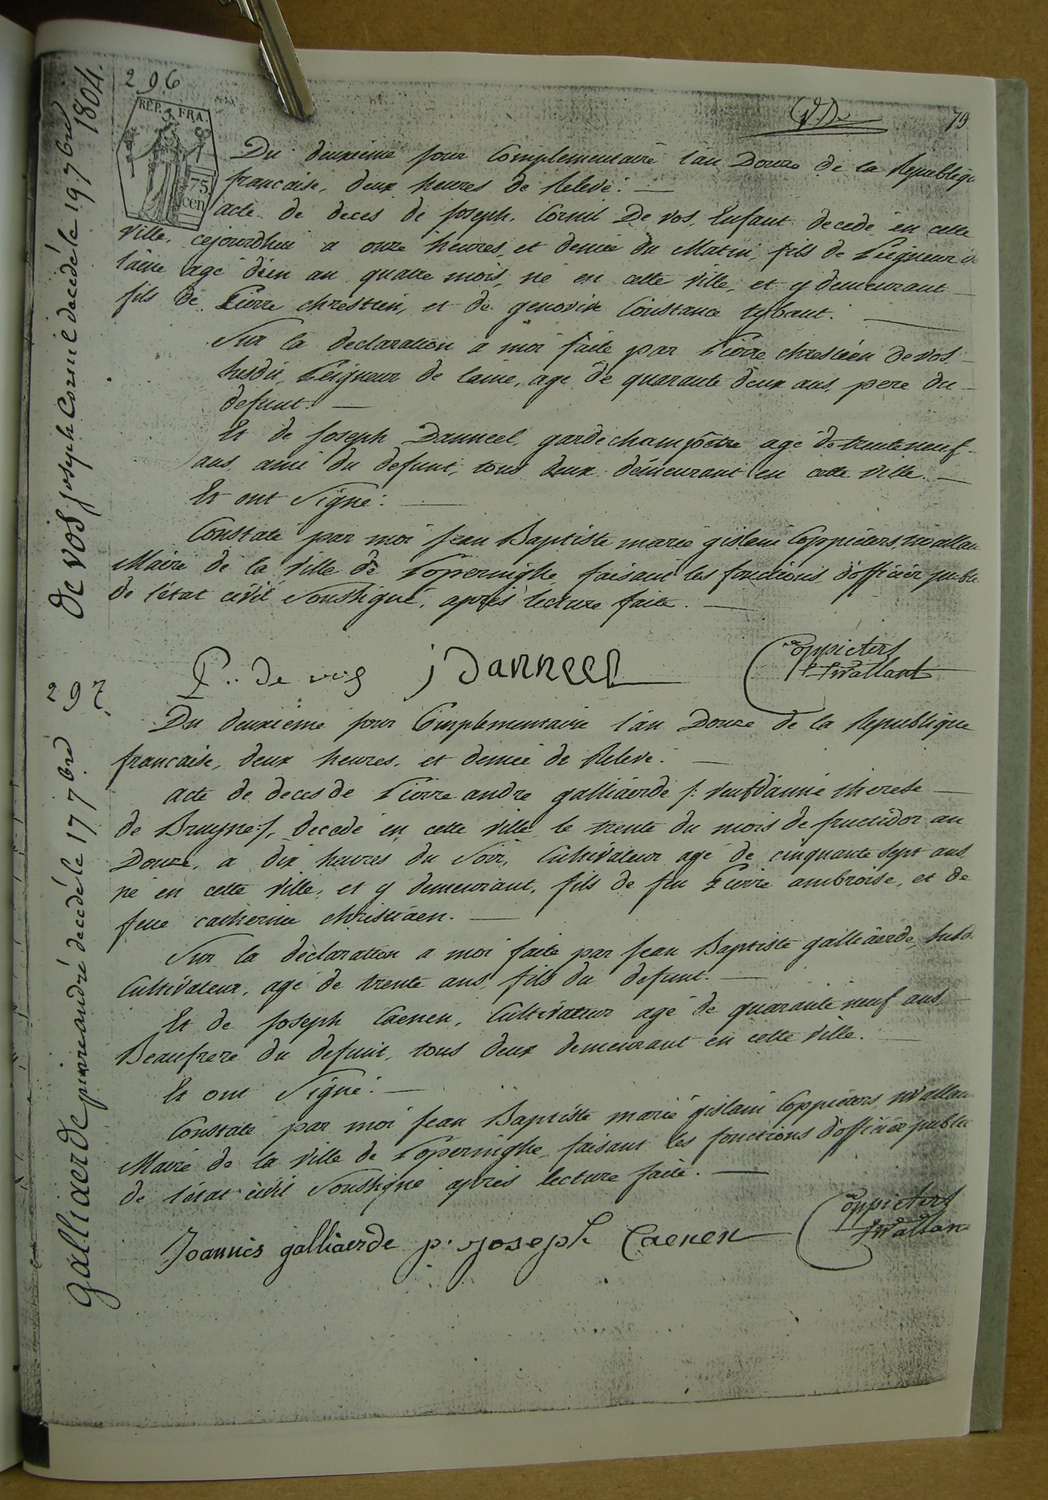 296
REP. FRA.
75
cen
79
Du deuxieme jour Complementaire l'an Douze de la Republiq
francaise, deux heures de Relevé. —
acte de deces de Joseph Cornil De vos, Enfant decedé en cette
ville, cejourdhui a onze heures et demie du Matin, fils de Peigneur de
laine agé d'un an quatre mois, né en cette ville, et y demeurant
fils de Pierre chrestien, et de genovive Constance tybaut. —
Sur la declaration a moi faite par Pierre chrestien de vos
susdit, Peigneur de laine, agé de quarante deux ans, pere du
defunt. —
Et de Joseph Danneel, garde champêtre agé de trente neuf
ans, ami du defunt, tous deux demeurant en cette ville. —
Et ont Signé. —
Constaté par moi Jean Baptiste marie gislain Coppieters, twallan
Maire de la ville de Poperinghe, faisant les fonctions d'officier public
de l'état civil Soussigné, aprés lecture faite. —
P. de vos J Danneel Coppieters
twallant
de vos joseph Cornil decedé le 19 7bre 1804.
297
Du deuxieme jour Complementaire l'an Douze de la Republique
francaise, deux heures et demie de Relevé. —
acte de deces de Pierre andre galliaerde /: veuf d'anne therese —
de Bruyne:/, decedé en cette ville le trente du mois de fructidor an
Douze, a dix heures du Soir, Cultivateur agé de cinquante sept ans
né en cette ville, et y demeurant, fils de feu Pierre ambroise, et de
feue catherine christiaen. —
Sur la déclaration a moi faite par Jean Baptiste galliaerde, susd.
Cultivateur, agé de trente ans, fils du defunt. —
Et de Joseph Caenen, Cultivateur agé de quarante neuf ans
Beaufrere du defunt, tous deux demeurant en cette ville. —
Et ont Signé. —
Constaté par moi Jean Baptiste marie gislain Coppieters, twallan
Maire de la ville de Poperinghe, faisant les fonctions d'officier public
de l'état civil Soussigné après lecture faite. —
Joannes galliaerde p. Joseph Caenen Coppieters
twallan
galliaerde pierre andré decedé le 17 7bre